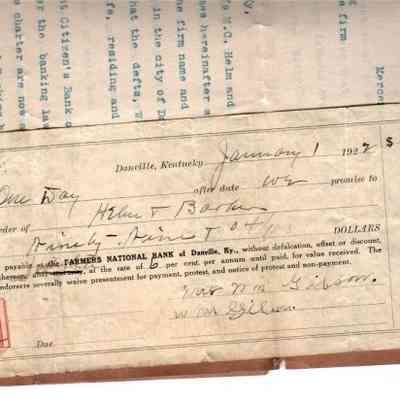 Mercer
e firm
ty,
M.C. Helm and
es hereinafter a
e firm name and
in the city of Da
hat the defts, W
fe, residing and
t Citizen's Bank o
er the banking law
s charter are now
Danville, Kentucky January 1 1922 $
One Day after date we promise to
order of Helm & Barker
Ninety-Nine & DOLLARS
payable at the FARMERS NATIONAL BANK of Danville, Ky., without defalcation, offset or discount,
at the rate of 6 per cent. per annum until paid, for value received. The
endorsers severally waive presentment for payment, protest, and notice of protest and non-payment.
Mrs W M Gibson.
W M Gibson.
Due